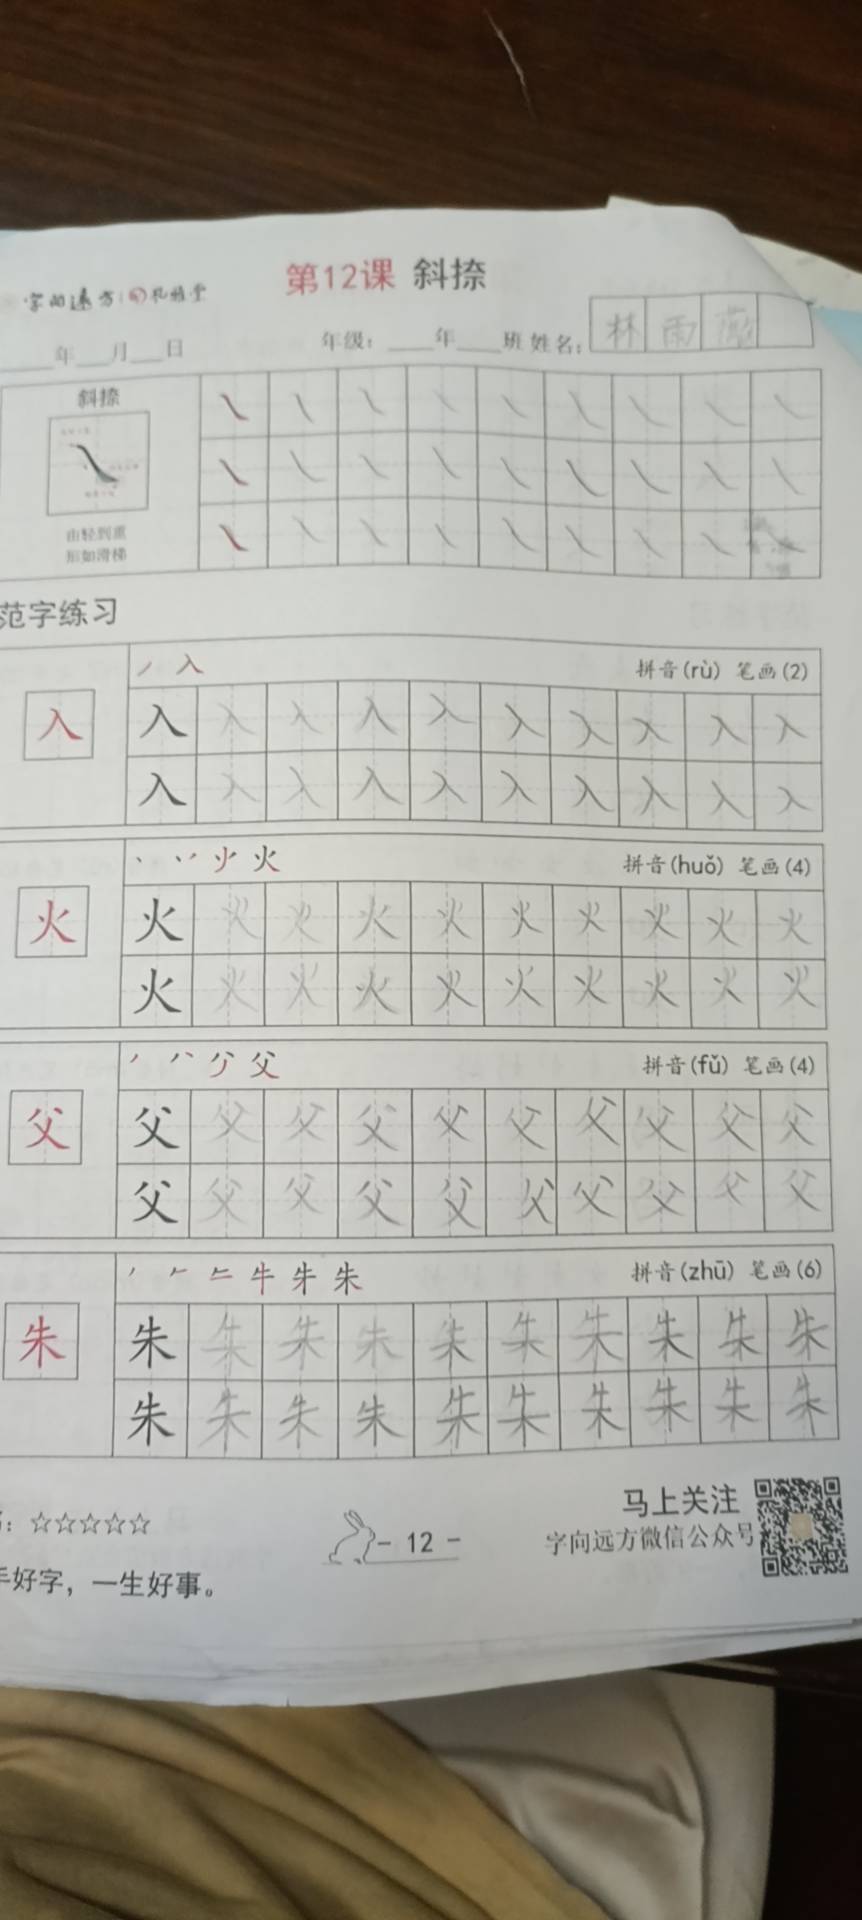 第12课 斜捺
字向远方
年 月 日 年级： 年 班 姓名： 林 雨
斜捺
由轻到重
形如滑梯
范字练习
丿 入 拼音(rù) 笔画(2)
入 入 入 入 入 入 入 入 入 入 入
入 入 入 入 入 入 入 入 入 入
火 拼音(huǒ) 笔画(4)
火 火 火 火 火 火 火 火 火 火 火
火 火 火 火 火 火 火 火 火 火
父 拼音(fǔ) 笔画(4)
父 父 父 父 父 父 父 父 父 父 父
父 父 父 父 父 父 父 父 父 父
牛 朱 拼音(zhū) 笔画(6)
朱 朱 朱 朱 朱 朱 朱 朱 朱 朱 朱
朱 朱 朱 朱 朱 朱 朱 朱 朱 朱
：☆☆☆☆☆
- 12 -
马上关注
字向远方微信公众号
手好字，一生好事。